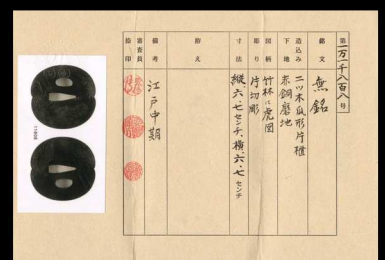 第一万一千八百八号
銘文 無銘
造込み 二ツ木瓜形片櫃
下地 赤銅磨地
図柄 竹林に虎図
彫り 片切彫
寸法 縦六、七センチ、横、六、七センチ
附え
備考 江戸中期
審査員
捺印
11808